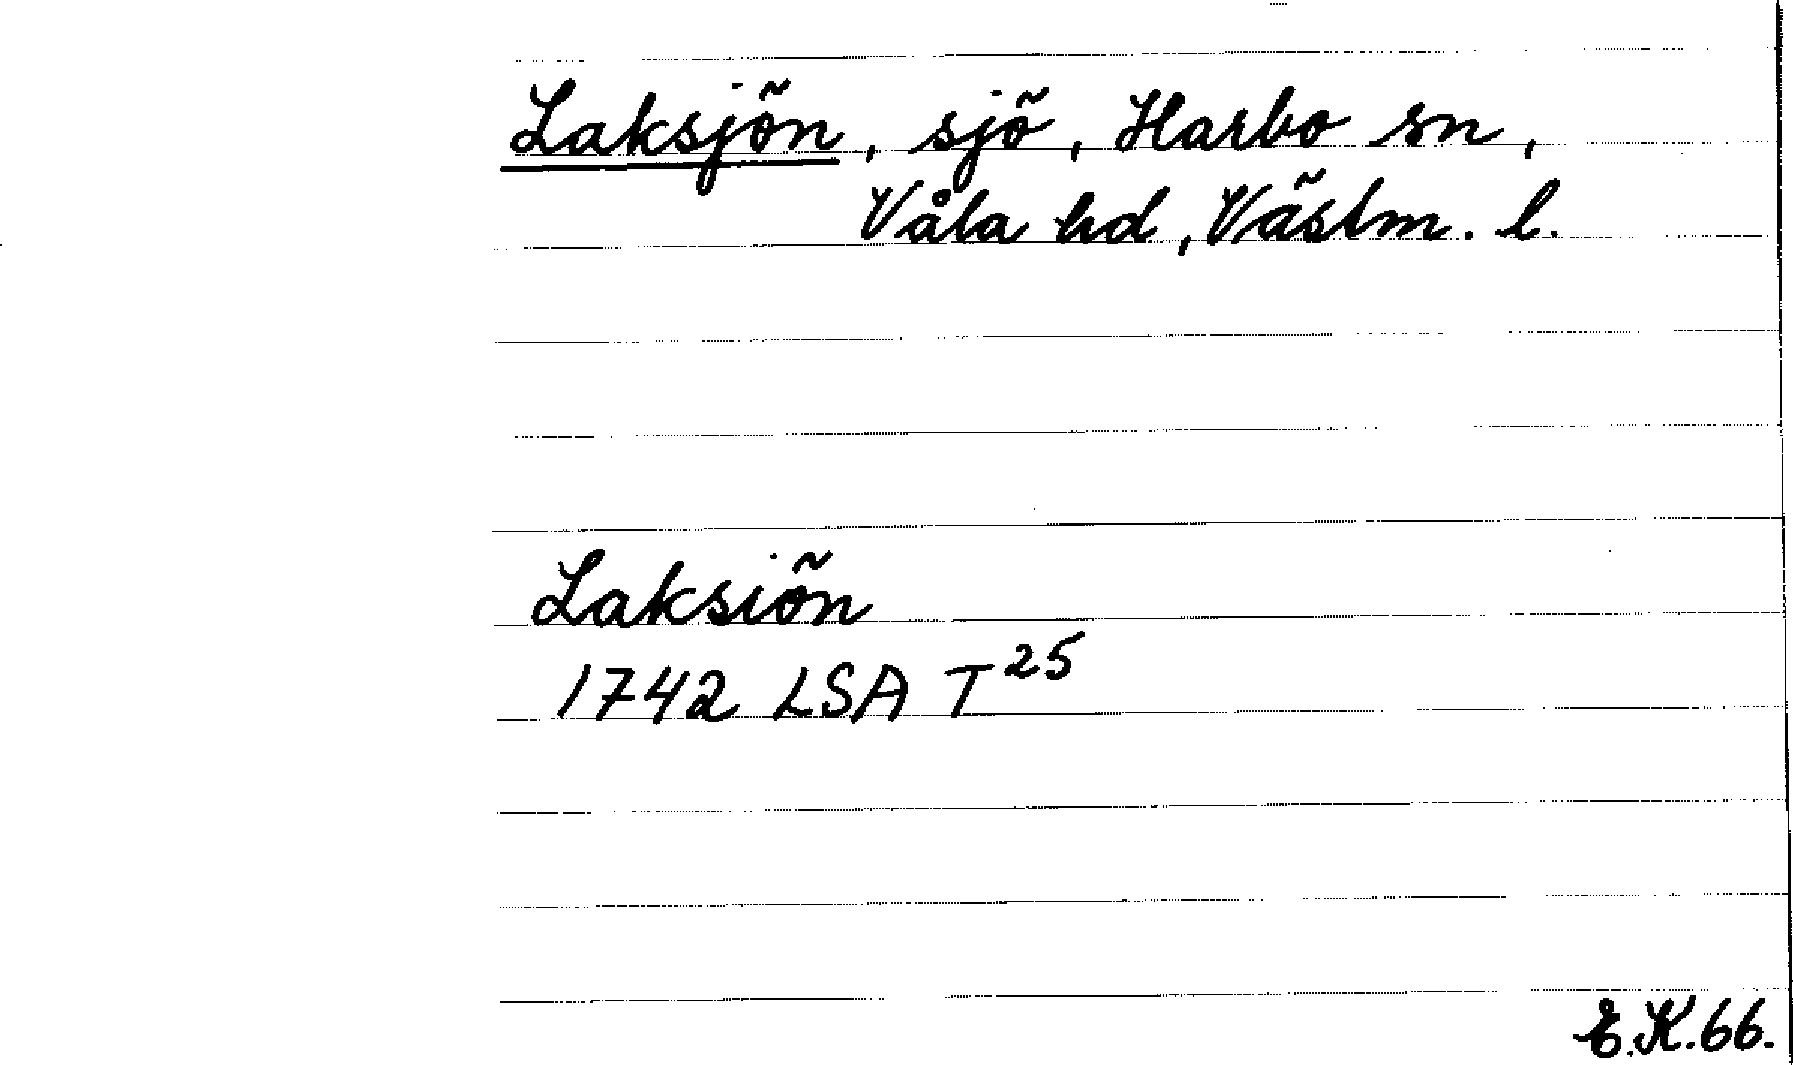 Laksjön, sjö, Harbo sn,
Våla hd, Västm. l.
Laksiön
1742 LSA T 25
E.K. 66.